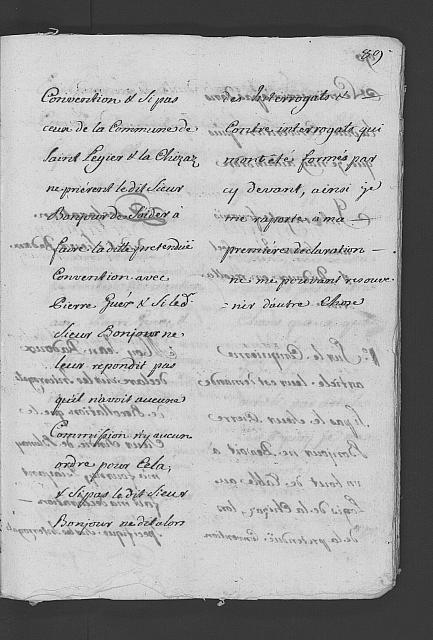 89
Convention & si pas
ceux de la Commune de
Saint Legier & la Chiraz
ne prierent le dit Sieur
Bonjour de S'aider à
faire la dite pretendüe
Convention avec
Pierre Guér & si le d.
Sieur Bonjour ne
leur repondit pas
qu'il n'avoit aucune
Commission n'y aucun
ordre pour Cela,
& si pas le dit Sieur
Bonjour ne dit alors
Interrogats &
Contre interrogats qui
m'ont étés formés par
cy devant, ainsi je
me raporte à ma
premiere declaration
ne me pouvant resouve
=nir d'autre Chose